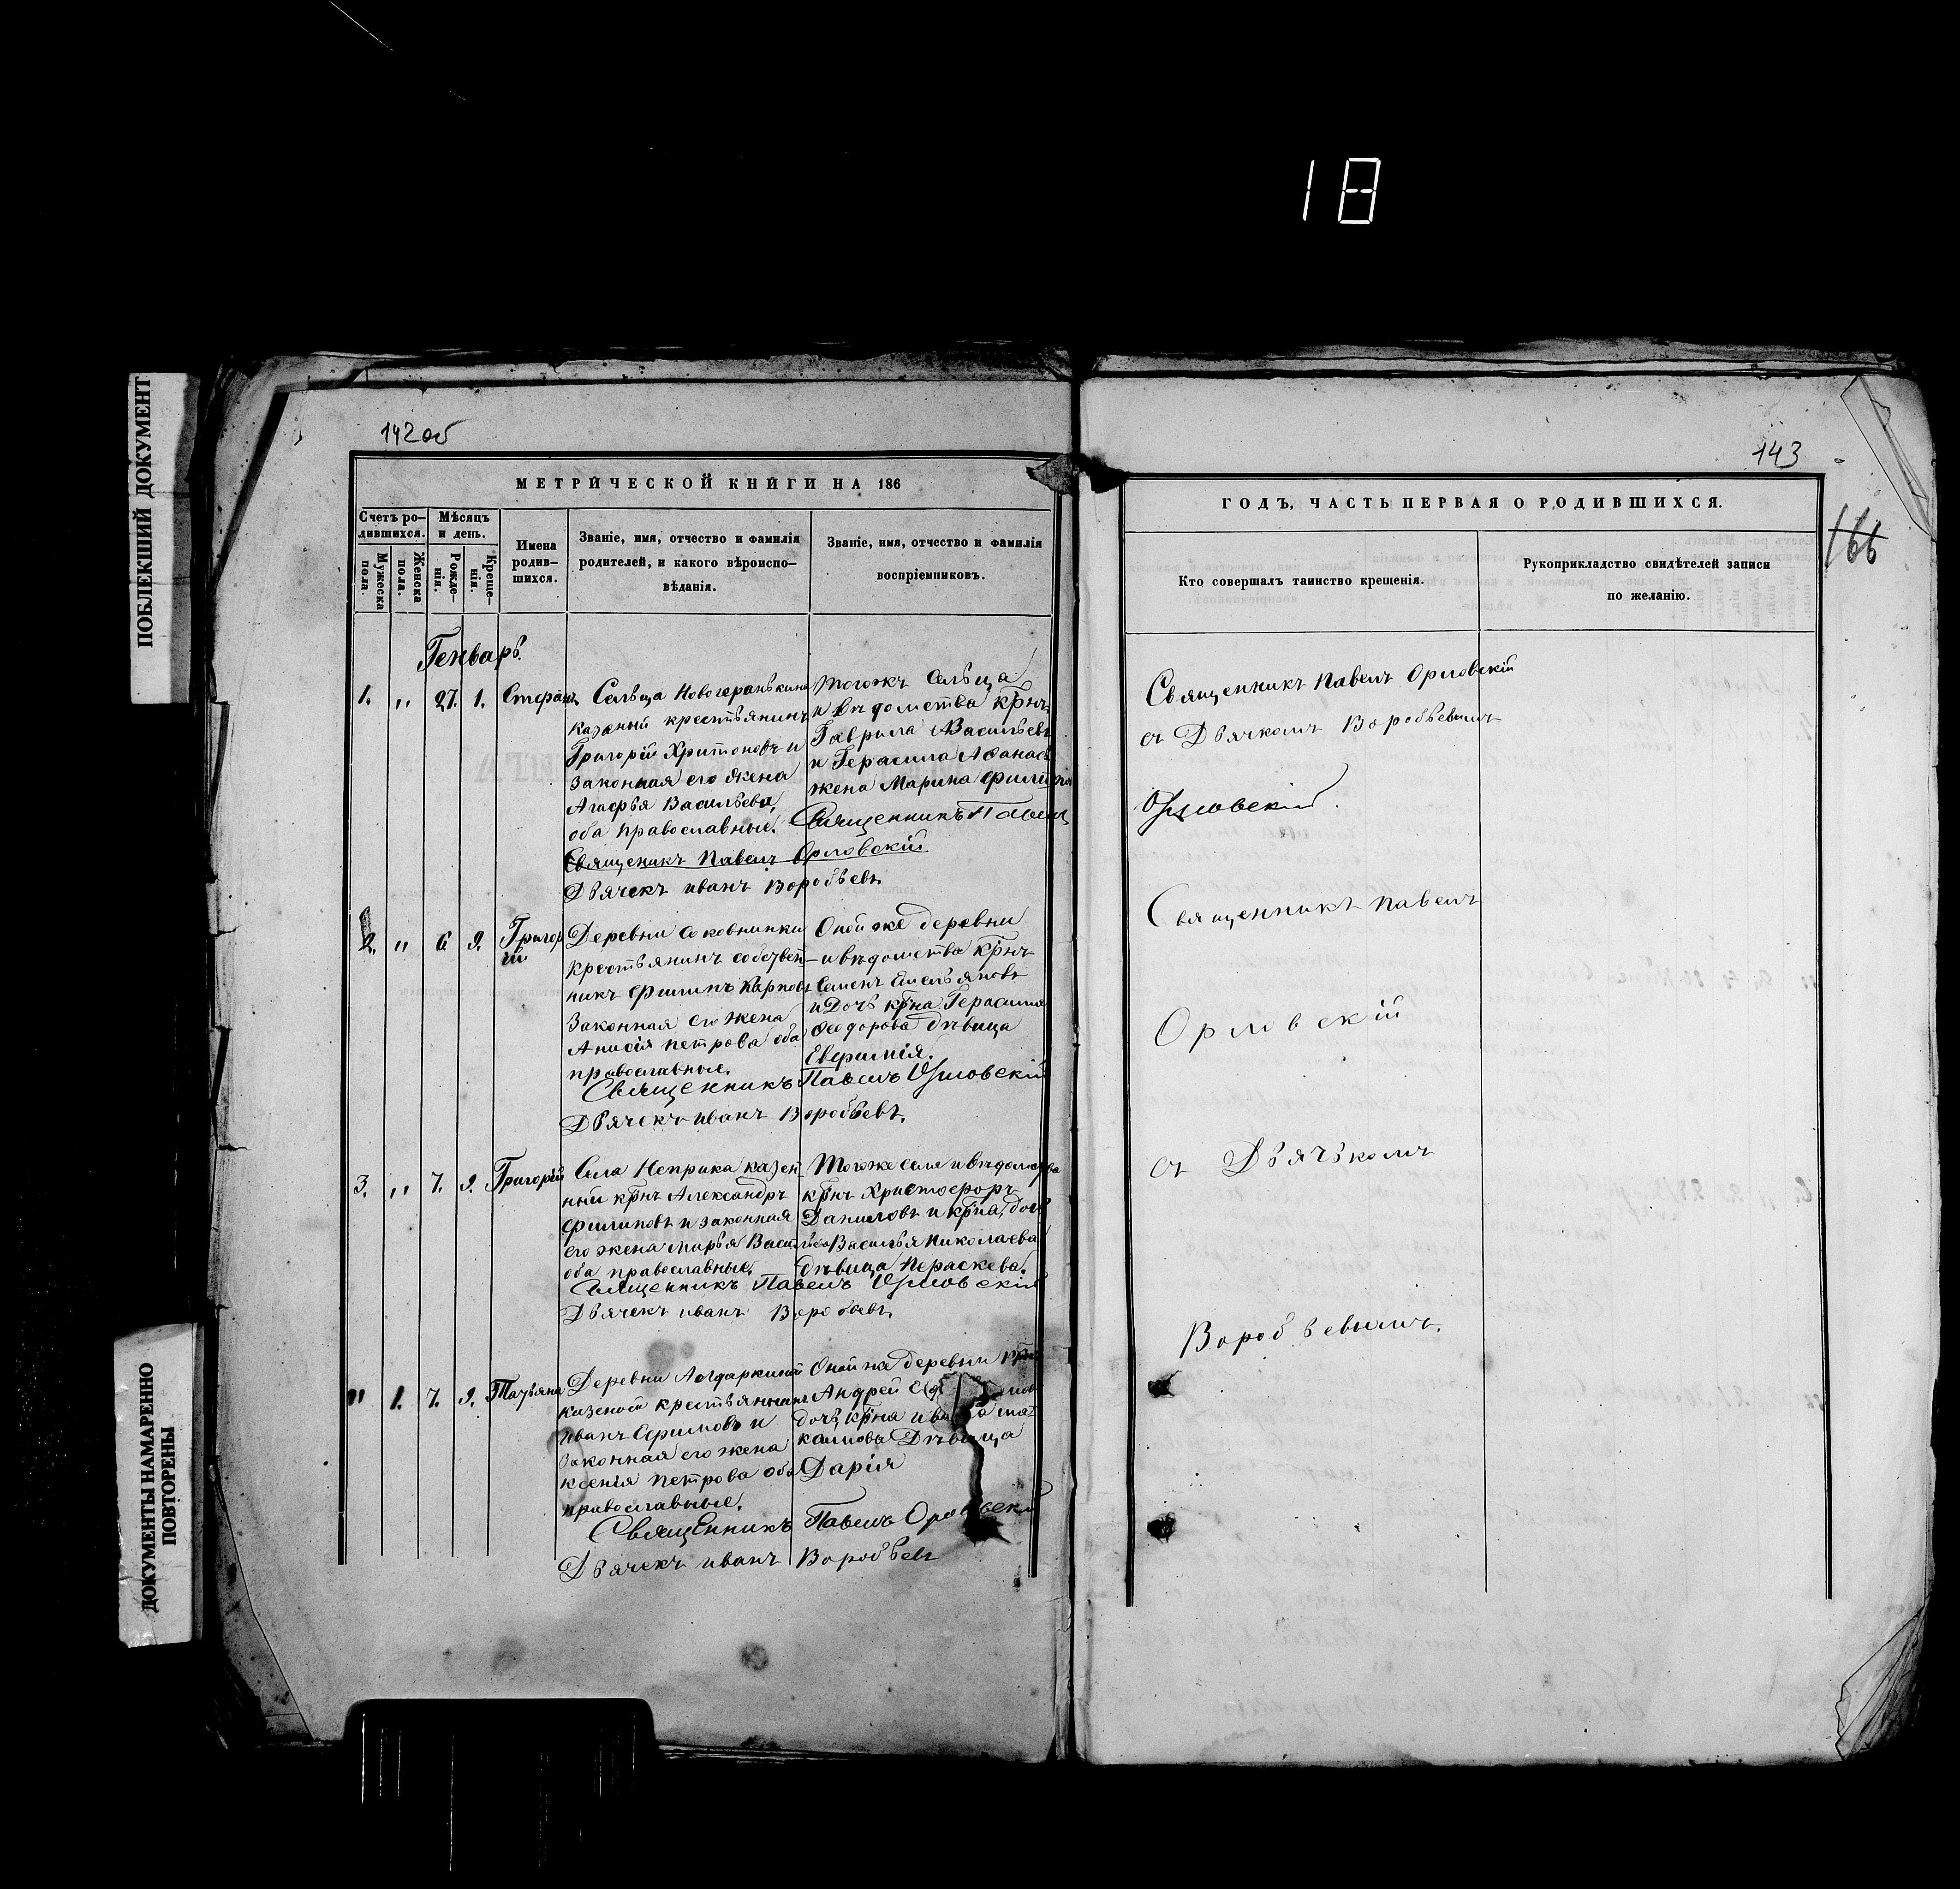 18
ПОБЛЕКШИЙ ДОКУМЕНТ
ДОКУМЕНТЫ НАМАРЕННО
ПОВТОРЕНЫ
142 об
МЕТРИЧЕСКОЙ КНИГИ НА 186
Счетъ ро-
дившихся.
Мужеска
пола.
Женска
пола.
Мѣсяцъ
и день.
Рожде-
нія.
Креще-
нія.
Имена
родив-
шихся.
Званіе, имя, отчество и фамилія
родителей, и какого вѣроиспо-
вѣданія.
Званіе, имя, отчество и фамилія
воспріемниковъ.
Генварь.
1. " 27. 1. Стефанъ
Сельца Новогеранькина
казеный крестьянинъ
Григорій Христоновъ и
законная его жена
Агафья Васильева,
оба православные.
Тогожъ Сельца
и вѣдомства крнъ
Гаврила Васильевъ
и Герасима Афанась
жена Марина
Священникъ Павелъ
Священикъ Павелъ Орловскій
Дьячекъ иванъ Воробьевъ
2. " 6 9. Григор
ій
Деревни Соковнинки
крестьянинъ собствен
никъ Филипъ Карповъ
Законная его жена
Анисія петрова оба
православные.
Оной же деревни
и вѣдомства крнъ
Семенъ Емельяновъ
и Дочь крна Герасима
Ѳеодорова дѣвица
Евфимія.
Священникъ Павелъ Орловскій
Дьячекъ иванъ Воробьевъ.
3. " 7. 9. Григорій
Села Неприка казен
ный крнъ Александръ
Филиповъ и законная
его жена марья Васильева
оба православные.
Тогоже села и вѣдомства
крнъ Христофоръ
Даниловъ и крна дочь
Василья Николаева
дѣвица Пераскева.
Священникъ Павелъ Орловскій
Дьячекъ иванъ Воробьевъ.
" 1. 7. 9. Татьяна
Деревни Алдаркиной
казеной крестьянинъ
иванъ Ефимовъ и
законная его жена
ксенія петрова оба
православные.
Оной же деревни крнъ
Андрей
дочь крна ивана
Дѣвица
Дарія
Священникъ Павелъ Орловскій
Дьячекъ иванъ Воробьевъ
143
166
ГОДЪ, ЧАСТЬ ПЕРВАЯ О РОДИВШИХСЯ.
Кто совершалъ таинство крещенія.
Рукоприкладство свидѣтелей записи
по желанію.
Священникъ Павелъ Орловскій
съ Дьячкомъ Воробьевымъ
Орловскій.
Священникъ Павелъ
Орловскій
съ Дьячькомъ
Воробьевымъ.